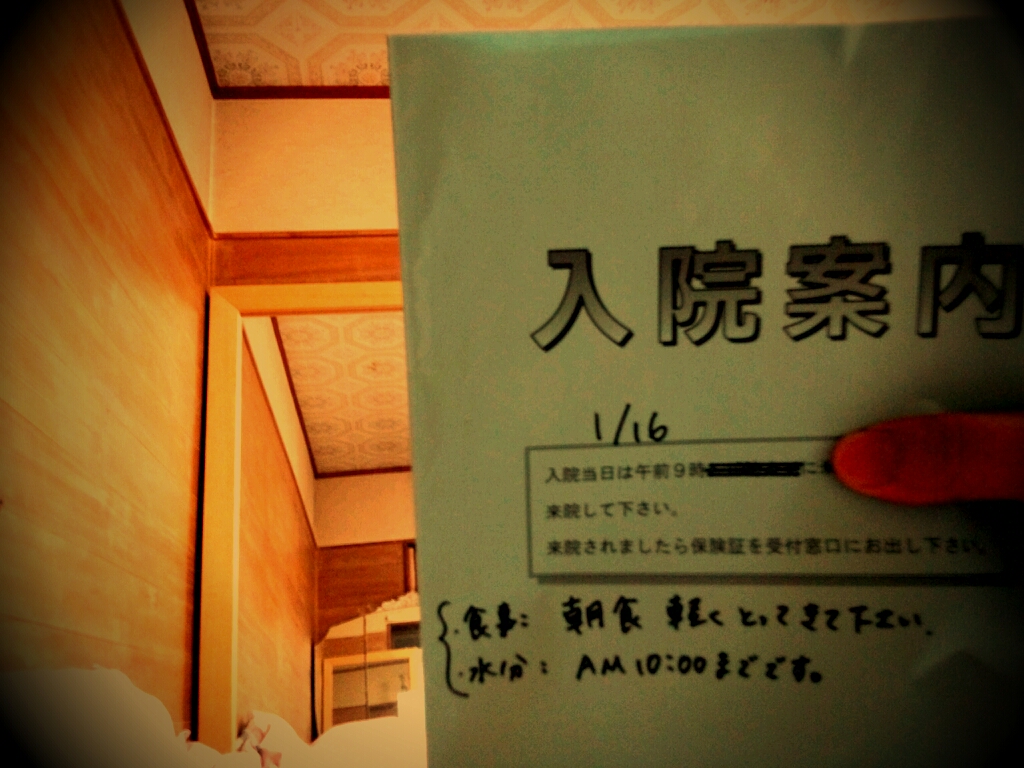 入院案内
1/16
入院当日は午前9時に
来院して下さい。
来院されましたら保険証を受付窓口にお出し下さい。
・食事: 朝食 軽くとってきて下さい。
・水分: AM10:00までです。